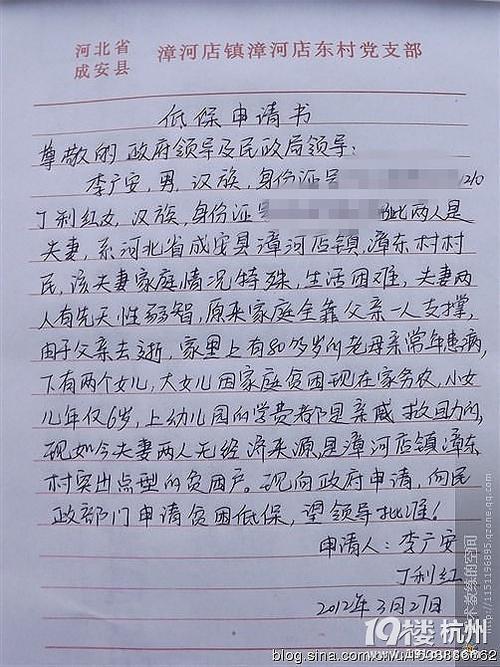 河北省
成安县
漳河店镇漳河店东村党支部
低保申请书
尊敬的政府领导及民政局领导：
李广安，男，汉族，身份证号 1210
丁利红女，汉族，身份证号 此两人是
夫妻，系河北省成安县漳河店镇，漳东村村
民，该夫妻家庭情况特殊，生活困难，夫妻两
人有先天性弱智，原来家庭全靠父亲一人支撑，
由于父亲去逝，家里上有80多岁的老母亲常年患病，
下有两个女儿，大女儿因家庭贫困现在家务农，小女
儿年仅6岁，上幼儿园的学费都是亲戚救助的，
现如今夫妻两人无经济来源，是漳河店镇漳东
村突出点型的贫困户。现向政府申请，向民
政部门申请贫困低保，望领导批准！
申请人：李广安
丁利红
2012年3月27日
19楼 杭州
术教练的空间
http://1151196895.qzone.qq.com
blog.sina.com.cn/u/1698886662